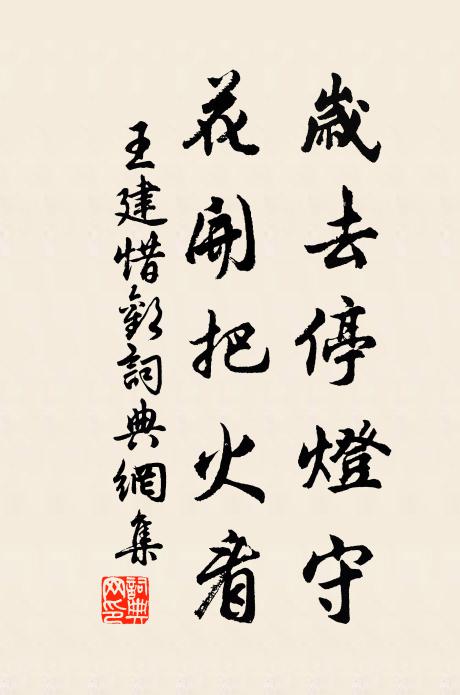 歲去停燈守
花開把火看
王建惜歡詞典網集
詞典網印